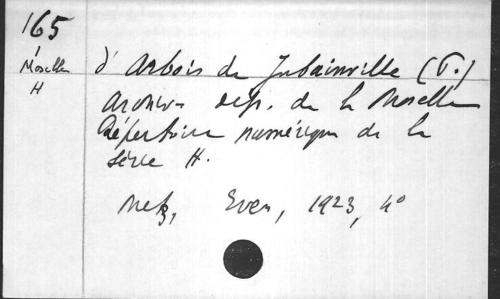 165
1
Moselle
H
d'Arbois de Jubainville (P.)
Archives dép. de la Moselle
Répertoire numérique de la
série H.
Metz, Even, 1923, 4°